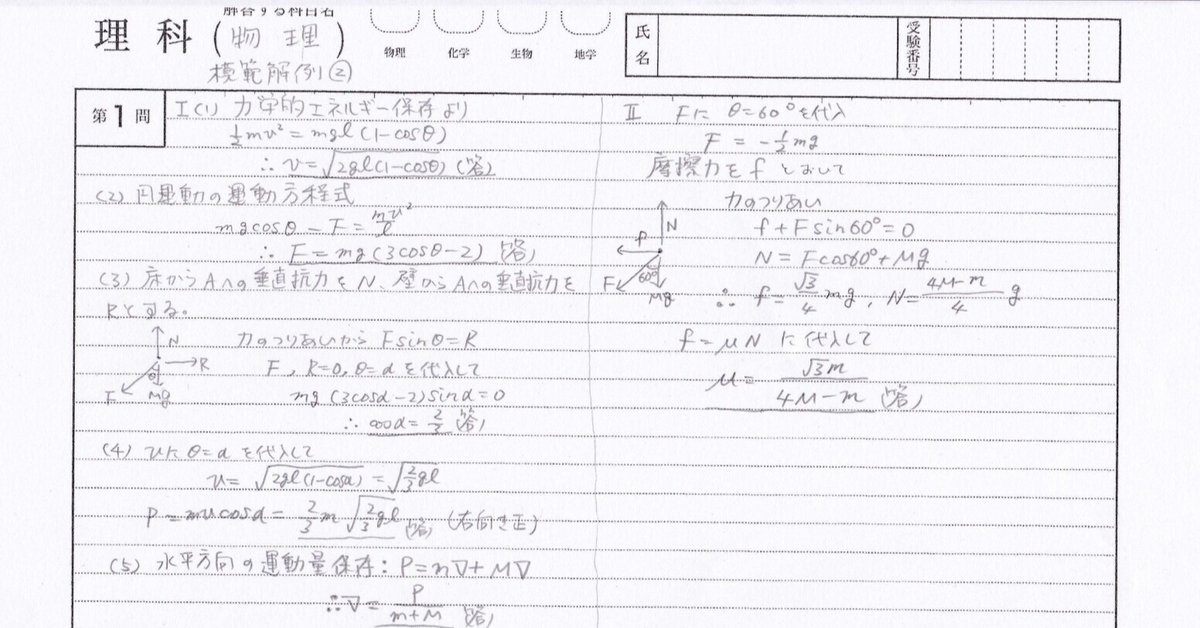 解答する科目名
理科(物理)
物理 化学 生物 地学
氏名
受験番号
模範解例②
第1問
I(1) 力学的エネルギー保存より
½mv²=mgl(1-cosθ)
∴ v=√2gl(1-cosθ) (答)
(2) 円運動の運動方程式
mgcosθ-F=mv²/l
∴ F=mg(3cosθ-2) (答)
(3) 床からAへの垂直抗力をN、壁からAへの垂直抗力を
Rとする。
N
R
F
θ
Mg
力のつりあいから Fsinθ=R
F, R=0, θ=αを代入して
mg(3cosα-2)sinα=0
∴ cosα=2/3 (答)
(4) vにθ=αを代入して
v=√2gl(1-cosα)=√2/3gl
P=mvcosα=2/3m√2/3gl (答) (右向き正)
(5) 水平方向の運動量保存: P=mV+MV
∴V=P/m+M (答)
II Fにθ=60°を代入
F=-½mg
摩擦力をfとおいて
力のつりあい
N
f
F
60°
Mg
f+Fsin60°=0
N=Fcos60°+Mg
∴ f=√3/4mg, N=4M-m/4g
f=μNに代入して
μ=√3m/4M-m (答)